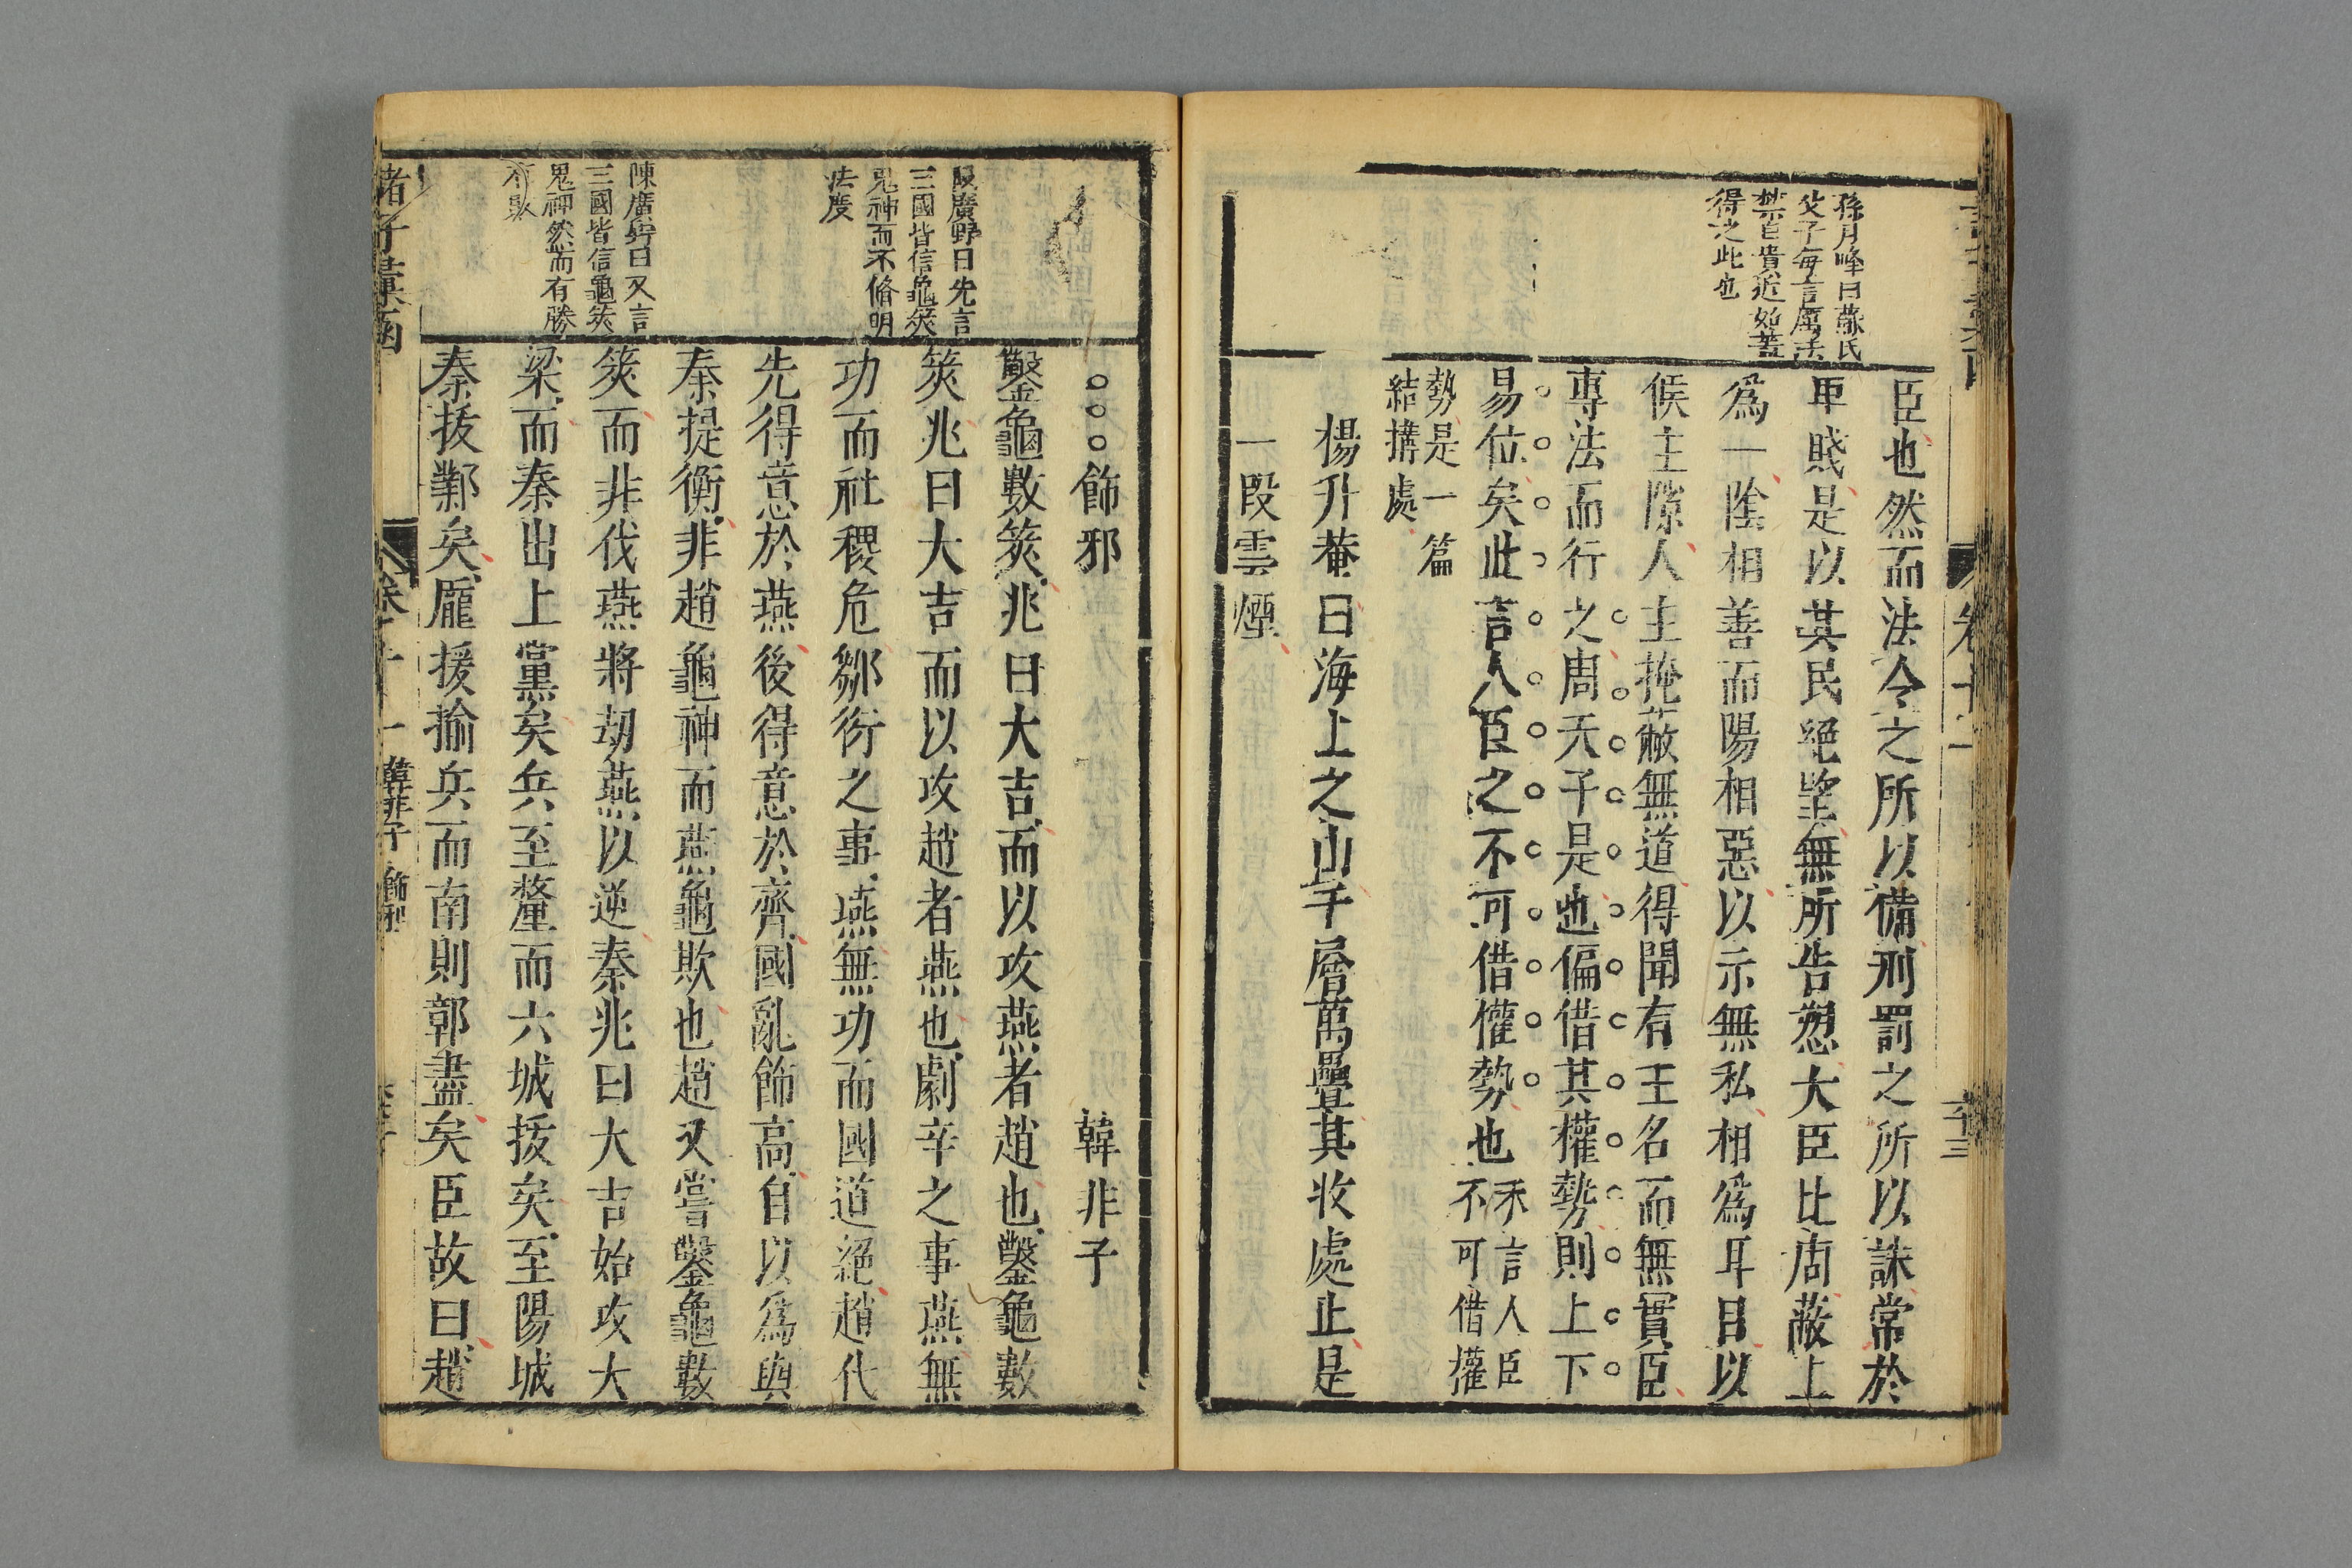 孫月峰曰蘇氏
父子每言厲法
禁自貴近始蓋
得之此也
臣也然而法令之所以備刑罰之所以誅常於
卑賤是以其民絕望無所告愬大臣比周蔽上
爲一陰相善而陽相惡以示無私相爲耳目以
候主隙人主掩蔽無道得聞有主名而無實臣
專法而行之周天子是也偏借其權勢則上下
易位矣此言人臣之不可借權勢也
不言人臣
不可借權
勢是一篇
結搆處
楊升菴曰海上之山千層萬疊其收處止是
一段雲煙
飾邪 韓非子
廣野曰先言
三國皆信龜筴
鬼神而不脩明
法度
陳廣野曰又言
三國皆信龜筴
鬼神然而有勝
有敗
鑿龜數筴兆曰大吉而以攻燕者趙也鑿龜數
筴兆曰大吉而以攻趙者燕也劇辛之事燕無
功而社稷危鄒衍之事燕無功而國道絕趙代
先得意於燕後得意於齊國亂飾高自以爲與
秦提衡非趙龜神而燕龜欺也趙又嘗鑿龜數
筴而非伐燕將刧燕以逆秦兆曰大吉始攻大
梁而秦出上黨矣兵至釐而六城拔矣至陽城
秦拔鄴矣龐援揄兵而南則鄣盡矣臣故曰趙
諸子彚函 卷十一 韓非子 飾邪